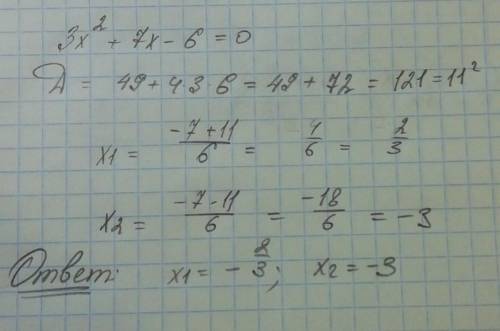 3x² + 7x - 6 = 0
D = 49 + 4·3·6 = 49 + 72 = 121 = 11²
x1 = (-7+11)/6 = 4/6 = 2/3
x2 = (-7-11)/6 = -18/6 = -3
Ответ: x1 = -2/3; x2 = -3